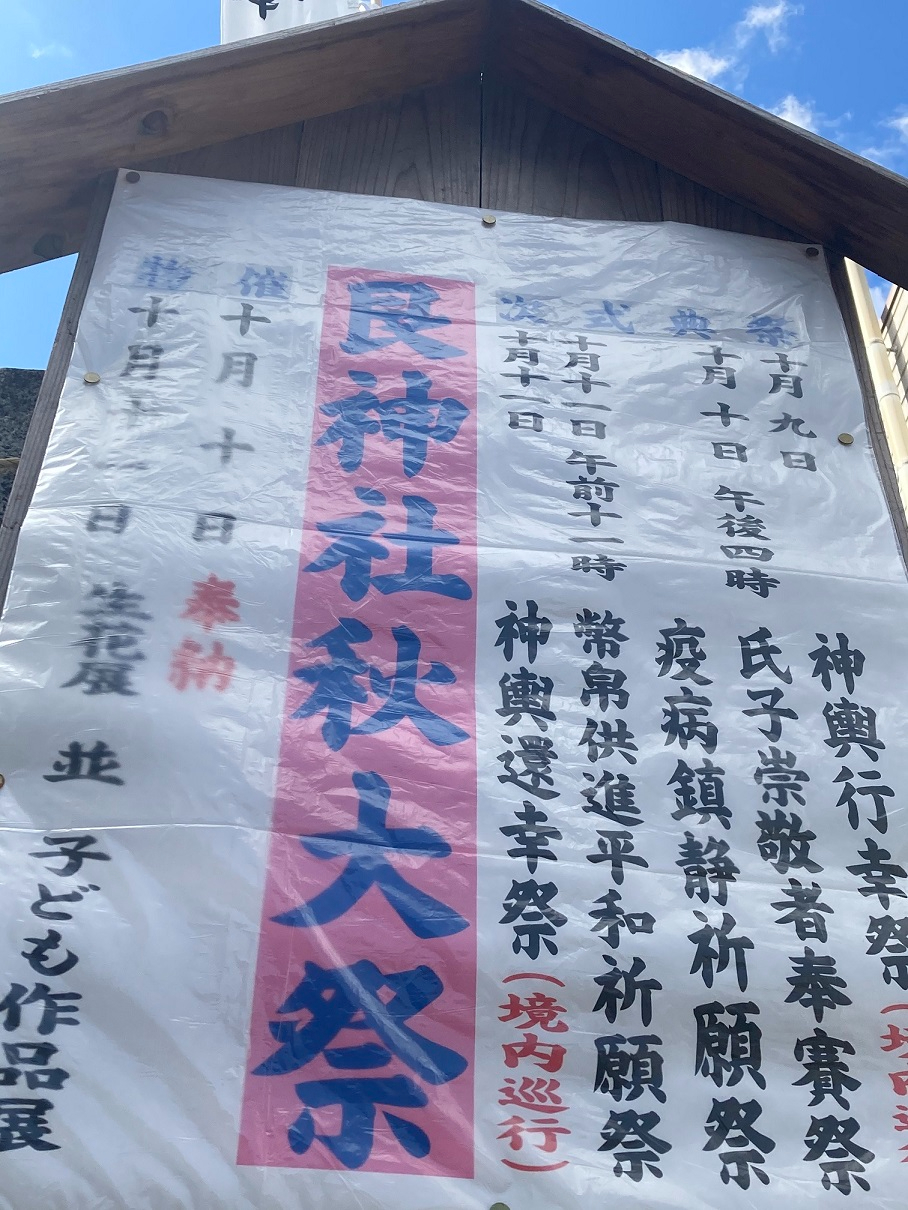 祭典式次
十月九日 神輿行幸祭(境内巡
十月十日 午後四時 氏子崇敬者奉賽祭
疫病鎮静祈願祭
十月十一日 午前十一時 幣帛供進平和祈願祭
十月十一日 神輿還幸祭(境内巡行)
艮神社秋大祭
催物
十月十日 奉納
十月十一日 生花展 並 子ども作品展